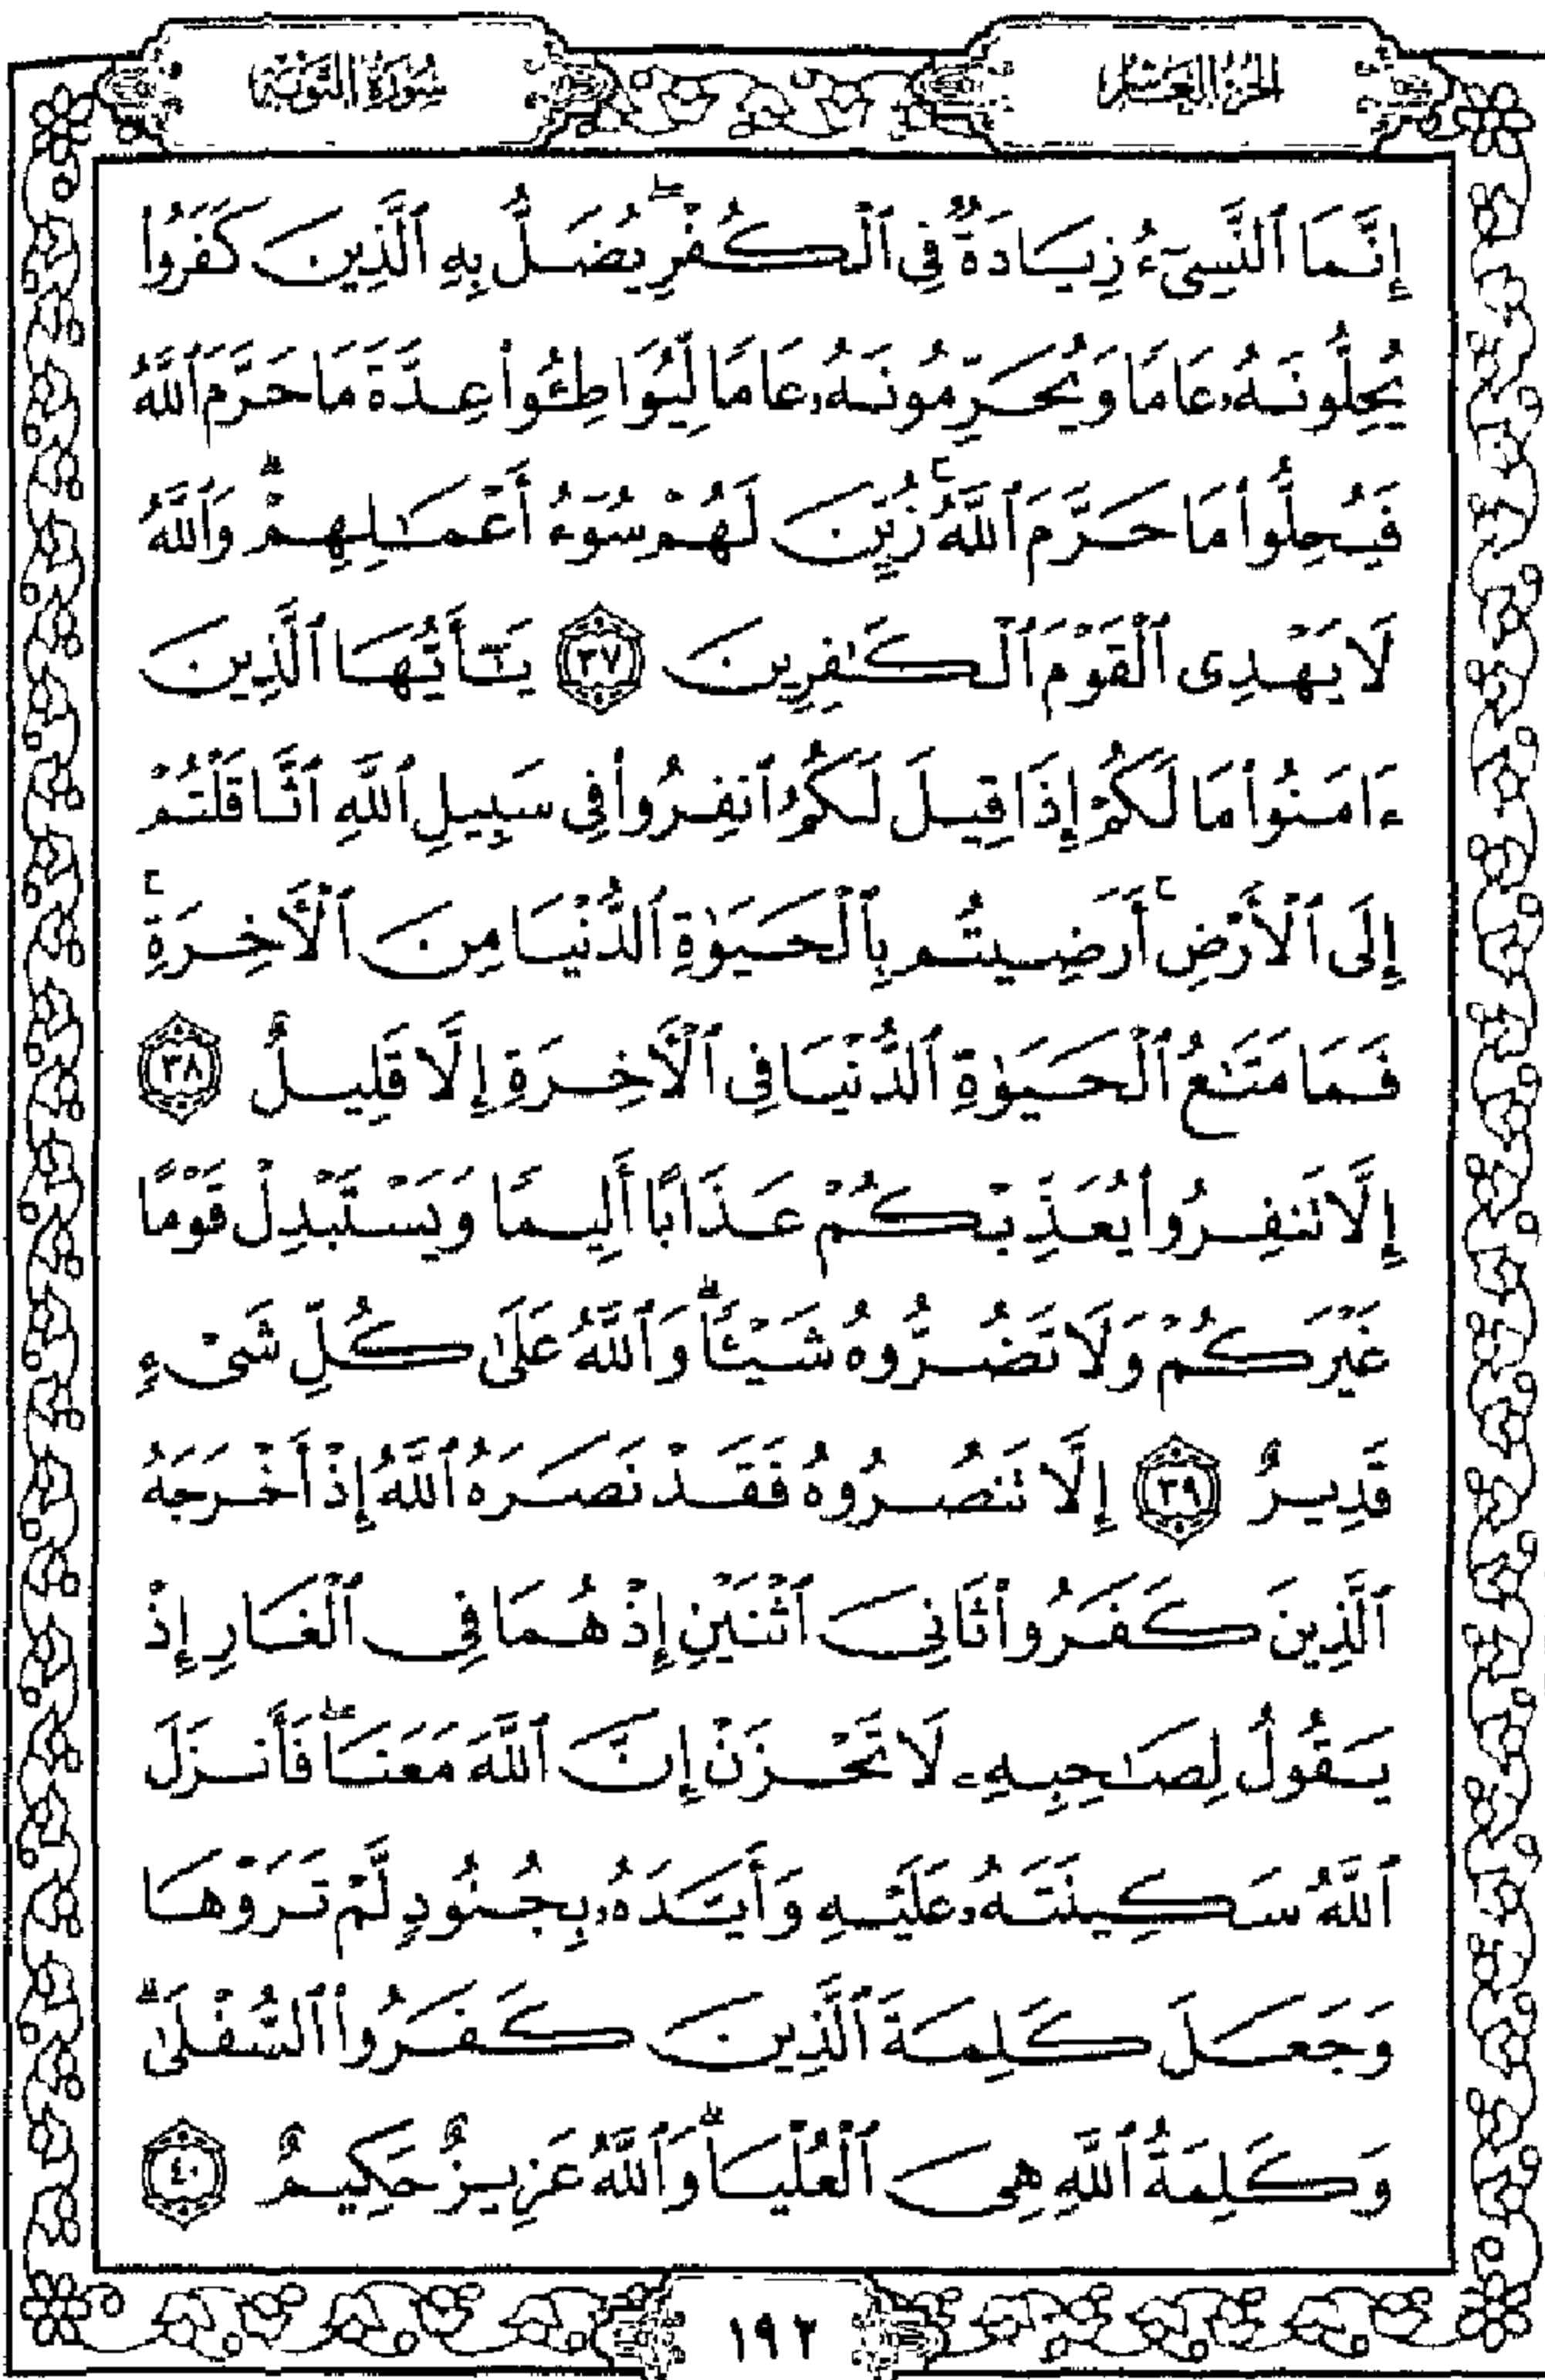 الجزء العاشر
سورة التوبة
إِنَّمَا ٱلنَّسِىٓءُ زِيَادَةٌ فِى ٱلْكُفْرِ ۖ يُضَلُّ بِهِ ٱلَّذِينَ كَفَرُوا۟
يُحِلُّونَهُۥ عَامًا وَيُحَرِّمُونَهُۥ عَامًا لِّيُوَاطِـُٔوا۟ عِدَّةَ مَا حَرَّمَ ٱللَّهُ
فَيُحِلُّوا۟ مَا حَرَّمَ ٱللَّهُ ۚ زُيِّنَ لَهُمْ سُوٓءُ أَعْمَـٰلِهِمْ ۗ وَٱللَّهُ
لَا يَهْدِى ٱلْقَوْمَ ٱلْكَـٰفِرِينَ ٣٧ يَـٰٓأَيُّهَا ٱلَّذِينَ
ءَامَنُوا۟ مَا لَكُمْ إِذَا قِيلَ لَكُمُ ٱنفِرُوا۟ فِى سَبِيلِ ٱللَّهِ ٱثَّاقَلْتُمْ
إِلَى ٱلْأَرْضِ ۚ أَرَضِيتُم بِٱلْحَيَوٰةِ ٱلدُّنْيَا مِنَ ٱلْأَخِرَةِ ۚ
فَمَا مَتَـٰعُ ٱلْحَيَوٰةِ ٱلدُّنْيَا فِى ٱلْأَخِرَةِ إِلَّا قَلِيلٌ ٣٨
إِلَّا تَنفِرُوا۟ يُعَذِّبْكُمْ عَذَابًا أَلِيمًا وَيَسْتَبْدِلْ قَوْمًا
غَيْرَكُمْ وَلَا تَضُرُّوهُ شَيْـًٔا ۗ وَٱللَّهُ عَلَىٰ كُلِّ شَىْءٍ
قَدِيرٌ ٣٩ إِلَّا تَنصُرُوهُ فَقَدْ نَصَرَهُ ٱللَّهُ إِذْ أَخْرَجَهُ
ٱلَّذِينَ كَفَرُوا۟ ثَانِىَ ٱثْنَيْنِ إِذْ هُمَا فِى ٱلْغَارِ إِذْ
يَقُولُ لِصَـٰحِبِهِۦ لَا تَحْزَنْ إِنَّ ٱللَّهَ مَعَنَا ۖ فَأَنزَلَ
ٱللَّهُ سَكِينَتَهُۥ عَلَيْهِ وَأَيَّدَهُۥ بِجُنُودٍ لَّمْ تَرَوْهَا
وَجَعَلَ كَلِمَةَ ٱلَّذِينَ كَفَرُوا۟ ٱلسُّفْلَىٰ ۗ
وَكَلِمَةُ ٱللَّهِ هِىَ ٱلْعُلْيَا ۗ وَٱللَّهُ عَزِيزٌ حَكِيمٌ ٤٠
١٩٣